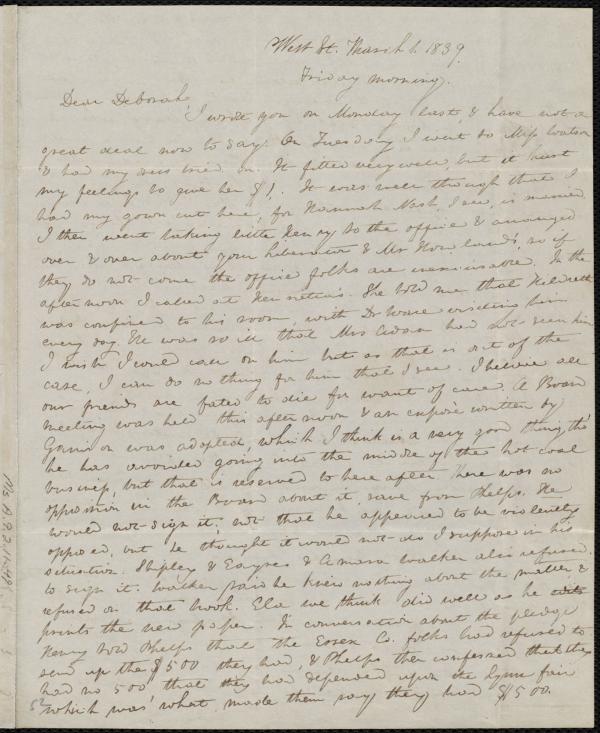 West St. March 1. 1839.
Friday morning.
Dear Deborah,
I wrote you on Monday last & have not a
great deal now to say. On Tuesday I went to Miss Watson
& had my dress tried on. It fitted very well, but it hurt
my feelings to give her $1. It was well though that I
had my gown cut here, for Hannah Nash, I see, is married.
I then went taking little Henry to the office & arranged
over & over about your Liberator & Mr How land's, so if
they do not come the office folks are inexcusable. In the
afternoon I called at Henrietta's. She told me that Hildreth
was confined to his room, with Dr Ware visiting him
every day. He was so ill that Mrs had not seen him
I wish I could call on him but as that is out of the
case, I can do nothing for him that I see. I believe all
our friends are fated to die for want of care. A Board
meeting was held this afternoon & an exposé written by
Garrison was adopted, which I think is a very good thing, tho'
he has avoided going into the middle of the hot coal
business, but that is reserved to here after. There was no
opposition in the Board about it, save from Phelps. He
would not sign it; not that he appeared to be violently
opposed, but he thought it would not do I suppose in his
situation. Shipley & Eayres & Amasa Walker also refused
to sign it. Walker said he knew nothing about the matter &
refused on that hook. Ela we think did well as he
prints the new paper. In conversation about the pledge
Henry told Phelps that the Essex Co. folks had refused to
send up the $500 they had, & Phelps then confessed that they
had no 500 that they had depended upon the Lynn fair
which was what made them say they had $500.
52
Ms.A.9.2.11.49